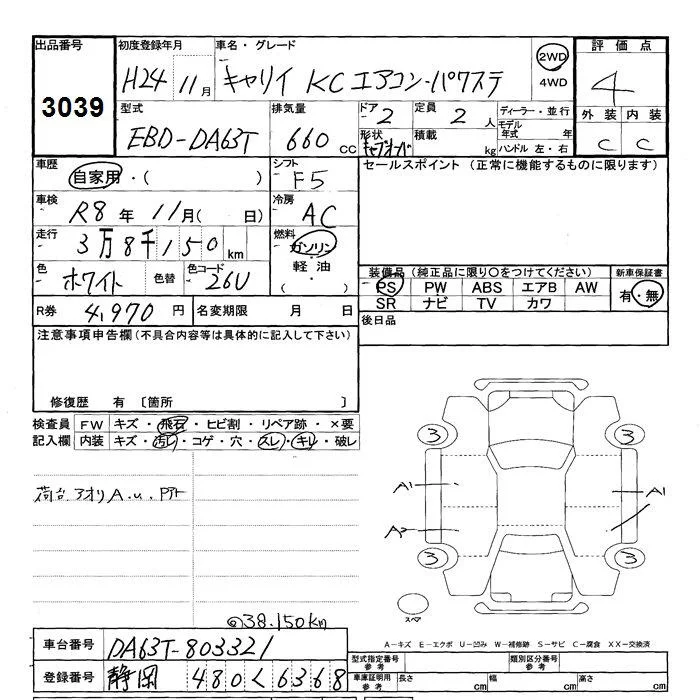 出品番号 初度登録年月 車名・グレード 2WD 4WD 評価点
3039 H24 11月 キャリイ KC エアコン・パワステ 4
型式 排気量 ドア 定員 ディーラー・並行 外装 内装
EBD-DA63T 660cc 2 2人 モデル年式 年 C C
形状 キャブオーバ 積載 kg ハンドル 左・右
車歴 自家用・( ) シフト F5 セールスポイント (正常に機能するものに限ります)
車検 R8年 11月( 日) 冷房 AC
走行 3万8千150km 燃料 ガソリン 軽油・( )
色 ホワイト 色替 色コード 26U
装備品 (純正品に限り○をつけてください) 新車保証書
PS PW ABS エアB AW 有・無
SR ナビ TV カワ
R券 4,970円 名変期限 月 日 後日品
注意事項申告欄(不具合内容等は具体的に記入して下さい)
修復歴 有 〔箇所 〕
検査員 FW キズ・飛石・ヒビ割・リペア跡・×要
記入欄 内装 キズ・汚レ・コゲ・穴・スレ・キレ・破レ
荷台.アオリA.U.Pアト
3 3
A1 A1
A2
3 3
スペア
38.150km
A-キズ E-エクボ U-凹み W-補修跡 S-サビ C-腐食 XX-交換済
車台番号 DA63T-803321 型式指定番号 参考 類別区分番号 参考
登録番号 静岡 480く6368 車庫証明用 参考 長さ cm 幅 cm 高さ cm